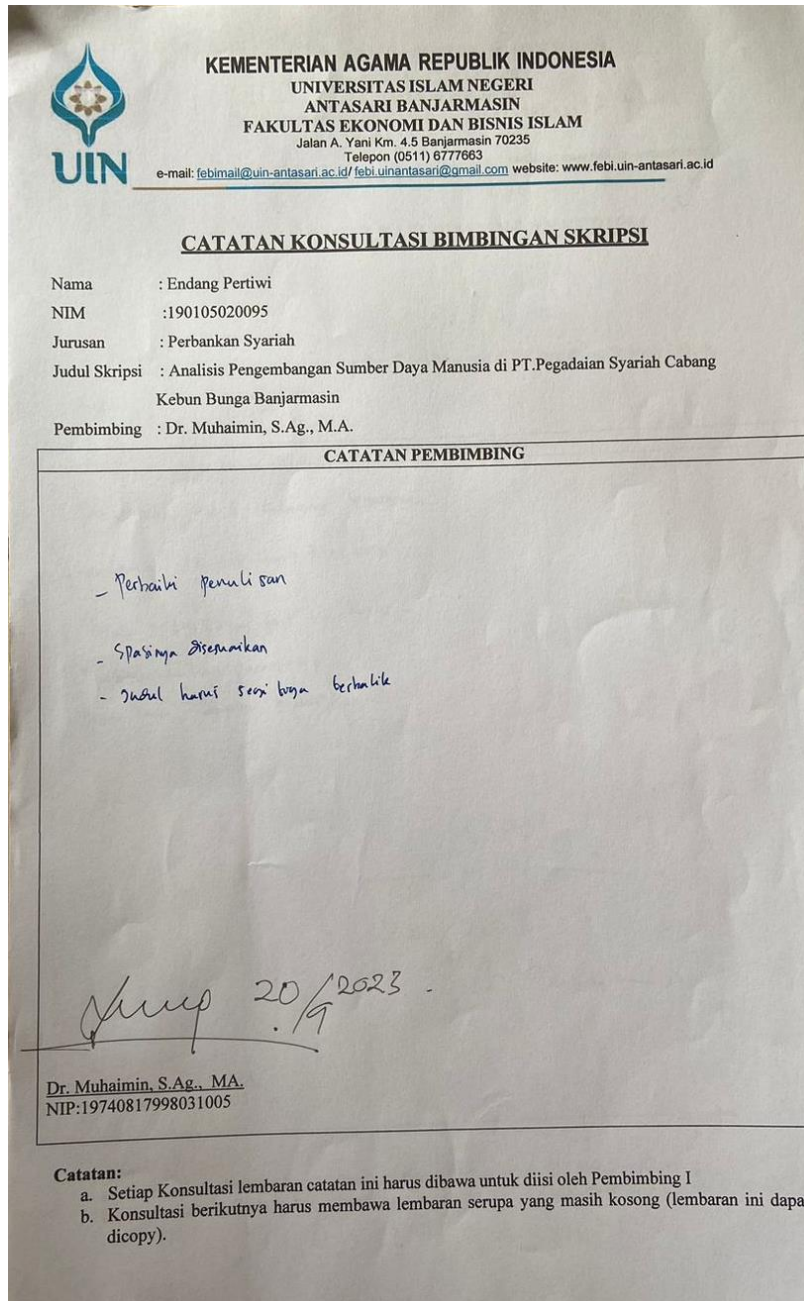 KEMENTERIAN AGAMA REPUBLIK INDONESIA
UNIVERSITAS ISLAM NEGERI
ANTASARI BANJARMASIN
FAKULTAS EKONOMI DAN BISNIS ISLAM
Jalan A. Yani Km. 4.5 Banjarmasin 70235
Telepon (0511) 6777663
e-mail: febimail@uin-antasari.ac.id/ febi.uinantasari@gmail.com website: www.febi.uin-antasari.ac.id
UIN
CATATAN KONSULTASI BIMBINGAN SKRIPSI
Nama : Endang Pertiwi
NIM :190105020095
Jurusan : Perbankan Syariah
Judul Skripsi : Analisis Pengembangan Sumber Daya Manusia di PT.Pegadaian Syariah Cabang
Kebun Bunga Banjarmasin
Pembimbing : Dr. Muhaimin, S.Ag., M.A.
CATATAN PEMBIMBING
- Perbaiki penulisan
- Spasinya disesuaikan
- Judul harus segi tiga berbalik
20/9 2023.
Dr. Muhaimin, S.Ag., MA.
NIP:19740817998031005
Catatan:
a. Setiap Konsultasi lembaran catatan ini harus dibawa untuk diisi oleh Pembimbing I
b. Konsultasi berikutnya harus membawa lembaran serupa yang masih kosong (lembaran ini dapa
dicopy).